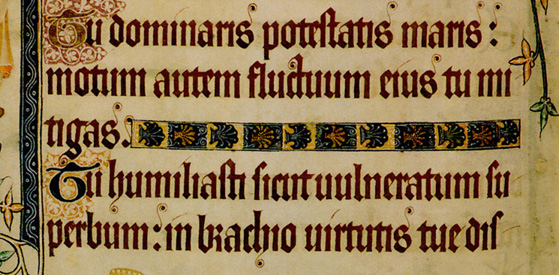 Tu dominaris potestatis maris :
motum autem fluctuum eius tu mi
tigas.
Tu humiliasti sicut uulneratum su
perbum : in brachio uirtutis tue dis